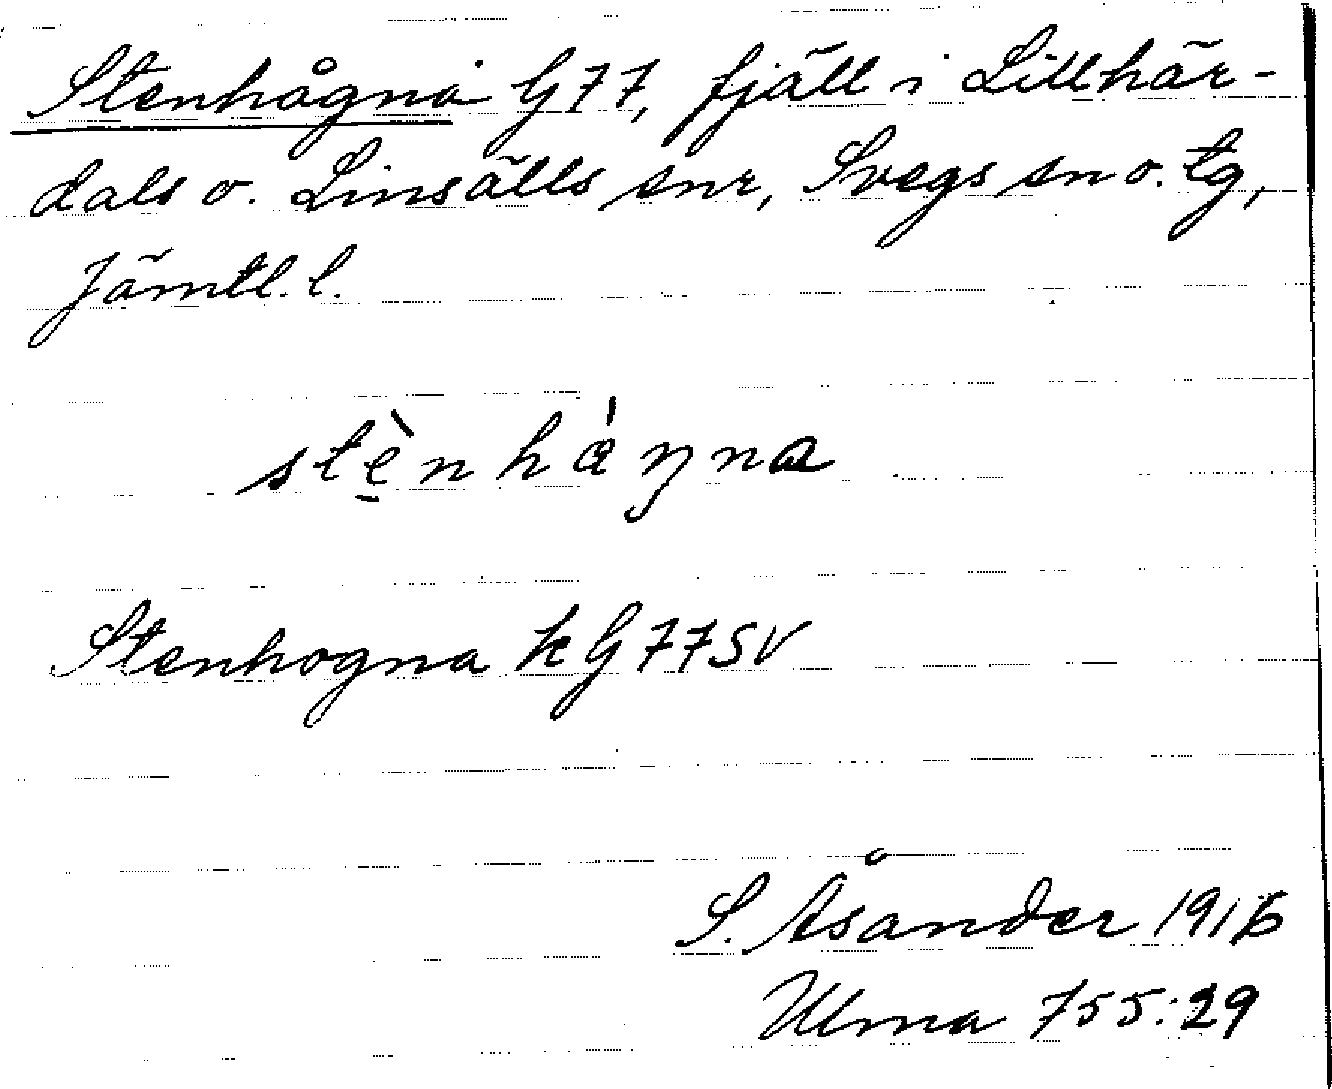 Stenhågna G77, fjäll i Lillhär-
dals o. Linsälls snr, Svegs sn o. tg,
Jämtl. l.
stè̠nháŋna
Stenhogna k G77SV
S. Åsander 1916
Ulma 755:29